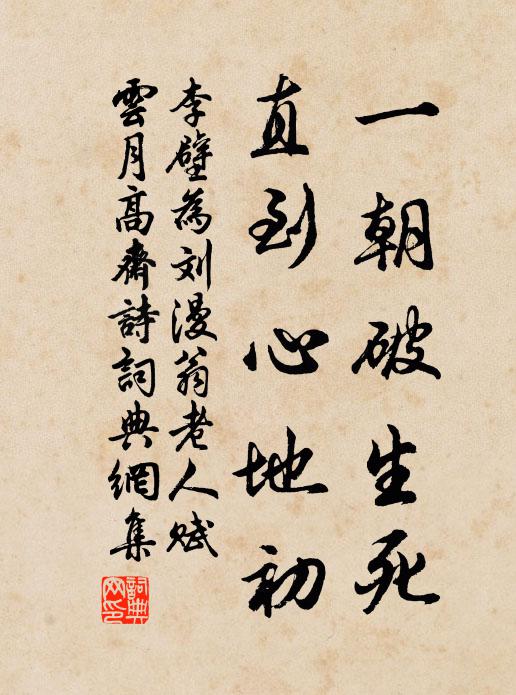 一朝破生死
直到心地初
李壁為刘漫翁老人赋
雲月高齋詩詞典網集
詞典
网印